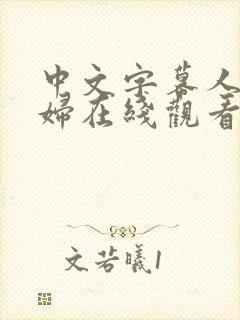 中文字幕人
婦在綫觀看
文若曦1